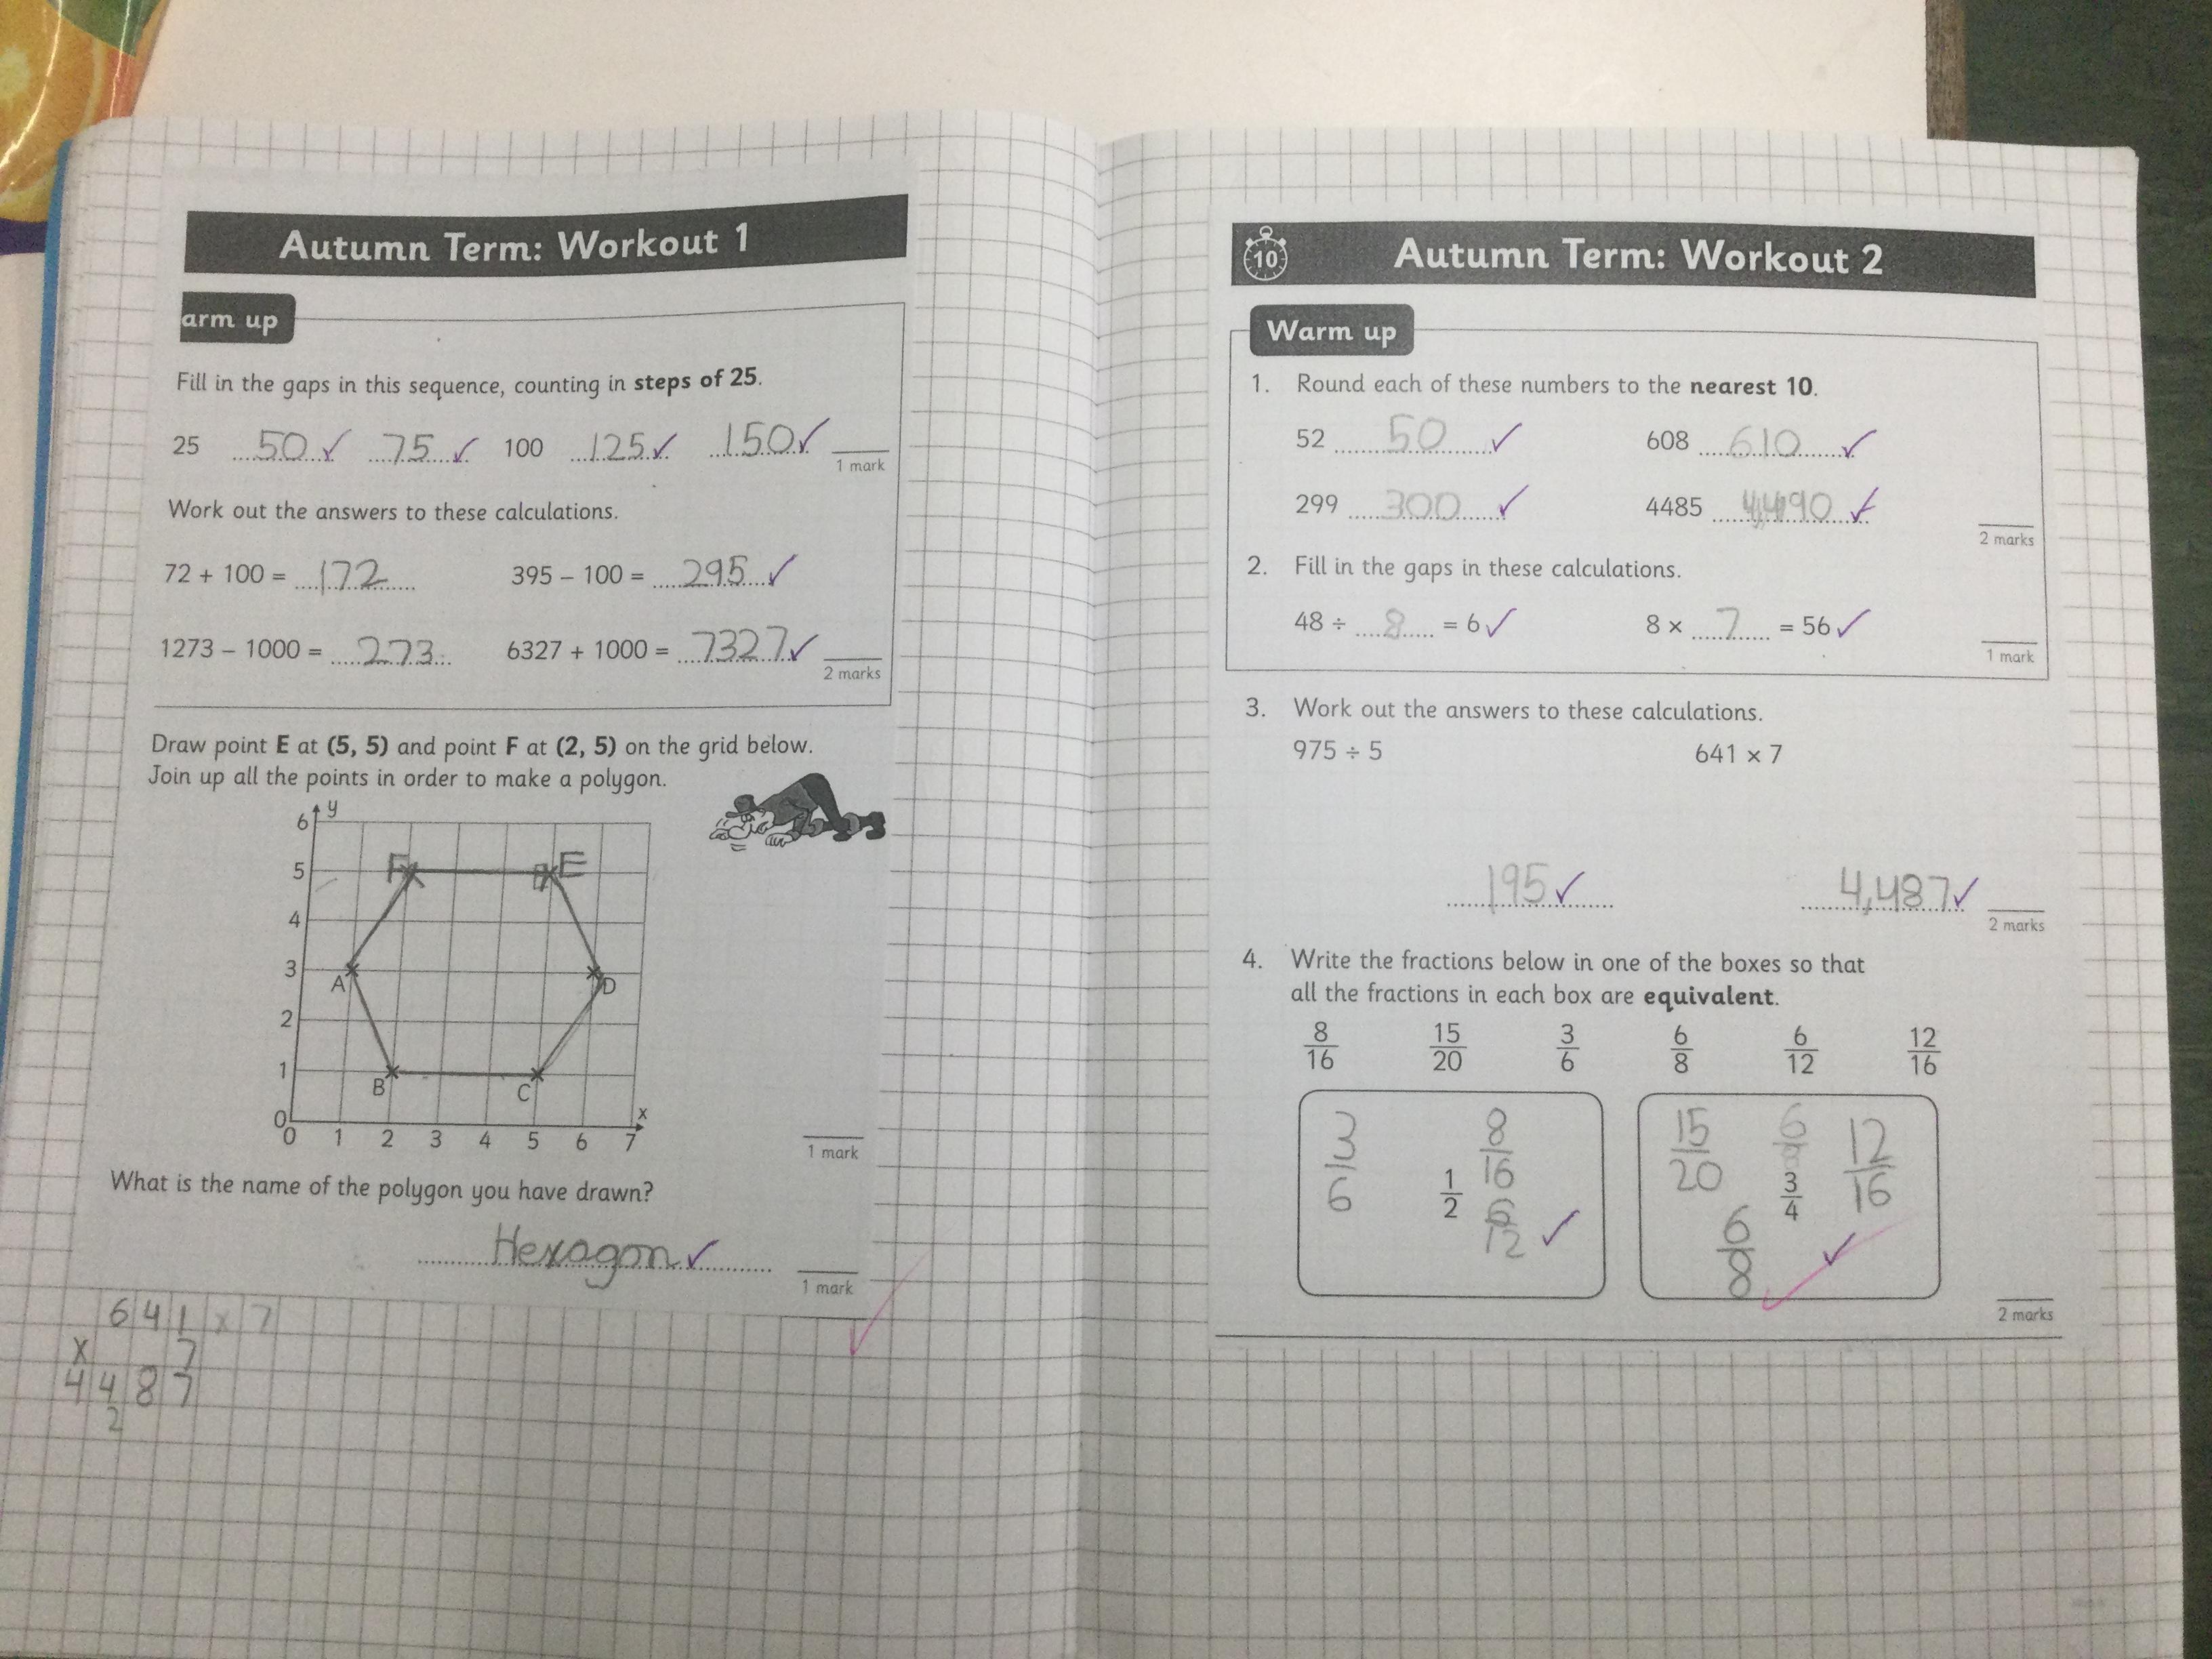 Autumn Term: Workout 1
arm up
Fill in the gaps in this sequence, counting in steps of 25.
25 50 ✓ 75 ✓ 100 125 ✓ 150 ✓
1 mark
Work out the answers to these calculations.
72 + 100 = 172 395 – 100 = 295 ✓
1273 – 1000 = 273 6327 + 1000 = 7327 ✓
2 marks
Draw point E at (5, 5) and point F at (2, 5) on the grid below.
Join up all the points in order to make a polygon.
y
6
5 F E
4
3 A D
2
1 B C
0 x
0 1 2 3 4 5 6 7
1 mark
What is the name of the polygon you have drawn?
Hexagon ✓
1 mark
641 x 7
x 7
4487
2
10 Autumn Term: Workout 2
Warm up
1. Round each of these numbers to the nearest 10.
52 50 ✓ 608 610 ✓
299 300 ✓ 4485 4,490 ✓
2 marks
2. Fill in the gaps in these calculations.
48 ÷ 8 = 6 ✓ 8 × 7 = 56 ✓
1 mark
3. Work out the answers to these calculations.
975 ÷ 5 641 × 7
195 ✓ 4,487 ✓
2 marks
4. Write the fractions below in one of the boxes so that
all the fractions in each box are equivalent.
8/16 15/20 3/6 6/8 6/12 12/16
3/6 1/2 8/16 6/12 ✓
15/20 3/4 12/16 6/8 ✓
2 marks